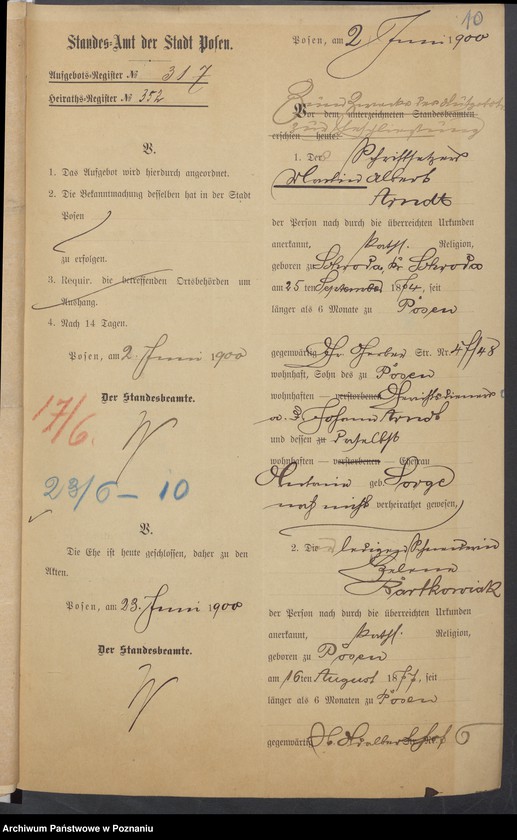 10
Standes-Amt der Stadt Posen.
Aufgebots-Register № 317
Heiraths-Register № 352
V.
1. Das Aufgebot wird hierdurch angeordnet.
2. Die Bekanntmachung desselben hat in der Stadt
Posen
zu erfolgen.
3. Requir. die betreffenden Ortsbehörden um
Aushang.
4. Nach 14 Tagen.
Posen, am 2. Juni 1900
Der Standesbeamte.
17/6.
23/6 – 10
V.
Die Ehe ist heute geschlossen, daher zu den
Akten.
Posen, am 23. Juni 1900
Der Standesbeamte.
Posen, am 2 Juni 1900
Vor dem unterzeichneten Standesbeamten
erschien heute:
1. Der Schriftsetzer
Martin Albert
Arndt
der Person nach durch die überreichten Urkunden
anerkannt, kath. Religion,
geboren zu Schroda, Kr Schroda
am 25 ten September 1874, seit
länger als 6 Monate zu Posen
gegenwärtig Gr Gerber Str. Nr. 47/48
wohnhaft, Sohn des zu Posen
wohnhaften — verstorbenen Gerichtsdieners
a. D. Johann Arndt
und dessen zu daselbst
wohnhaften — verstorbenen — Ehefrau
Antonie geb. Sorge
noch nicht verheirathet gewesen,
2. Die ledige Schneiderin
Helene
Bartkowiak
der Person nach durch die überreichten Urkunden
anerkannt, kath. Religion,
geboren zu Posen
am 16 ten August 1877, seit
länger als 6 Monaten zu Posen
gegenwärtig 6
Archiwum Państwowe w Poznaniu